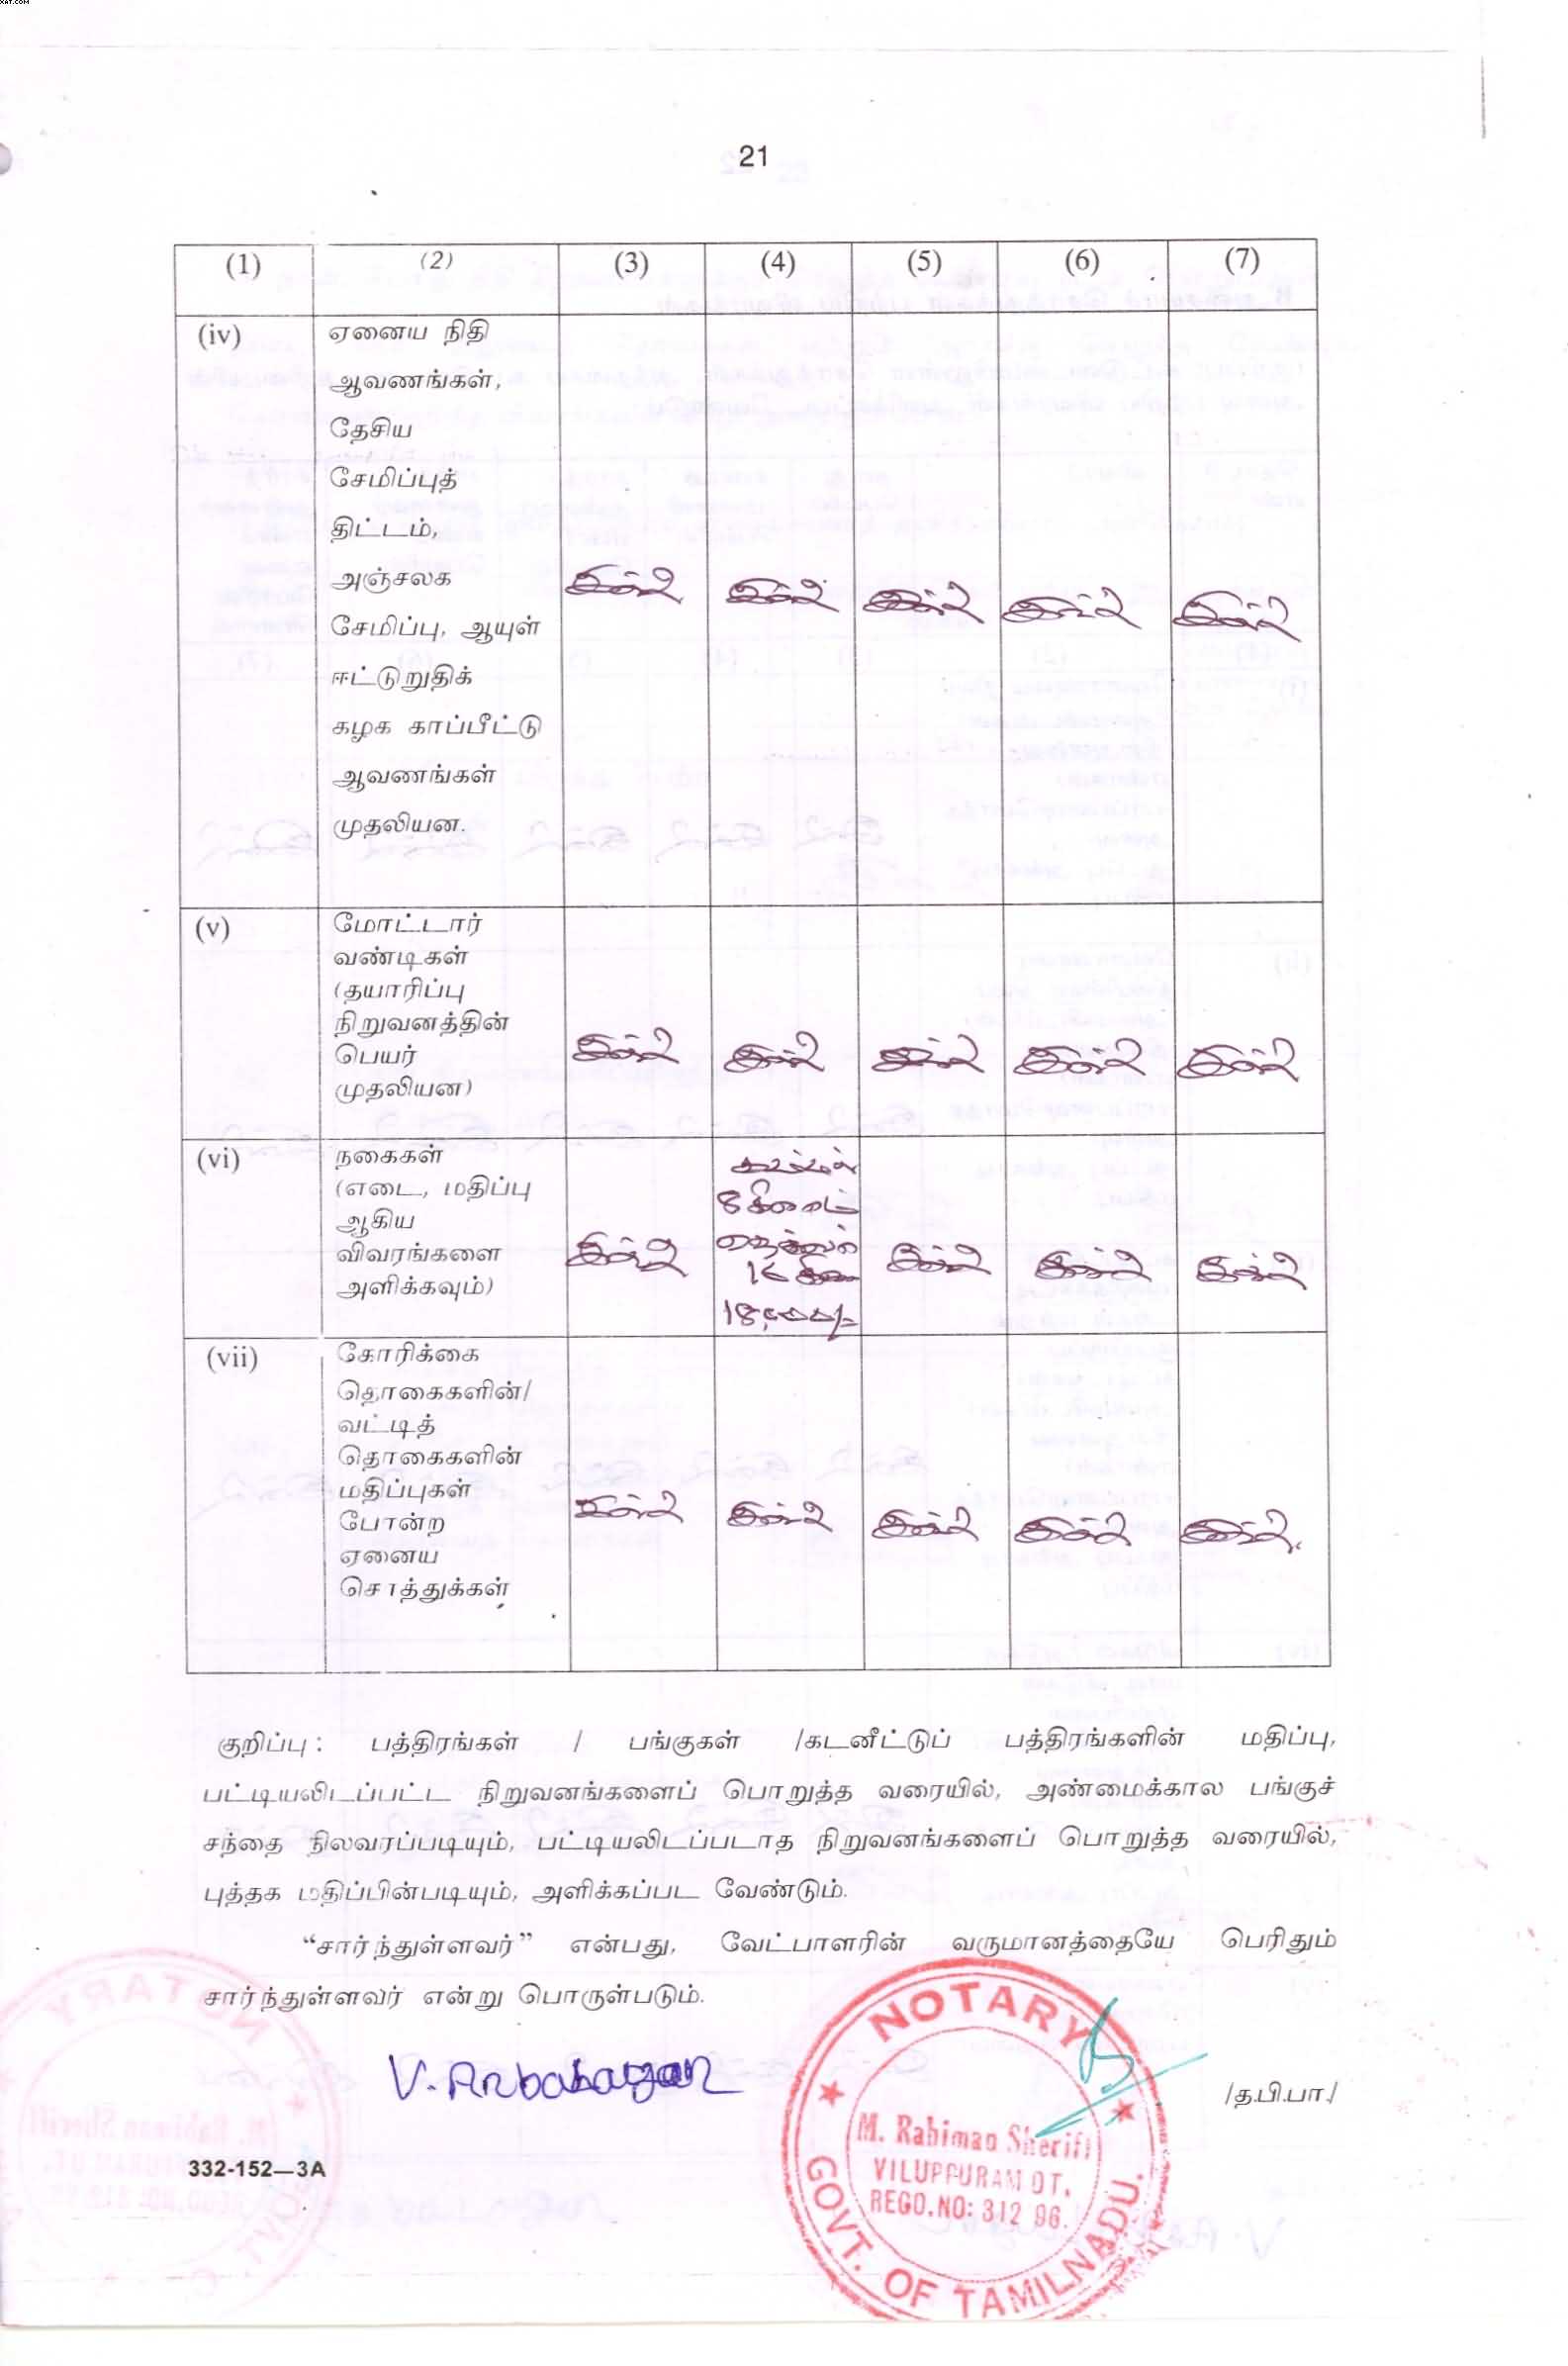 XAT.COM
21
(1) (2) (3) (4) (5) (6) (7)
(iv) ஏனைய நிதி
ஆவணங்கள்,
தேசிய
சேமிப்புத்
திட்டம்,
அஞ்சலக
சேமிப்பு, ஆயுள்
ஈட்டுறுதிக்
கழக காப்பீட்டு
ஆவணங்கள்
முதலியன.
இல்லை இல்லை இல்லை இல்லை இல்லை
(v) மோட்டார்
வண்டிகள்
(தயாரிப்பு
நிறுவனத்தின்
பெயர்
முதலியன)
இல்லை இல்லை இல்லை இல்லை இல்லை
(vi) நகைகள்
(எடை, மதிப்பு
ஆகிய
விவரங்களை
அளிக்கவும்)
இல்லை
8 கிராம்
16 கிராம்
18,000/-
இல்லை இல்லை இல்லை
(vii) கோரிக்கை
தொகைகளின்/
வட்டித்
தொகைகளின்
மதிப்புகள்
போன்ற
ஏனைய
சொத்துக்கள்
இல்லை இல்லை இல்லை இல்லை இல்லை
குறிப்பு : பத்திரங்கள் / பங்குகள் /கடனீட்டுப் பத்திரங்களின் மதிப்பு,
பட்டியலிடப்பட்ட நிறுவனங்களைப் பொறுத்த வரையில், அண்மைக்கால பங்குச்
சந்தை நிலவரப்படியும், பட்டியலிடப்படாத நிறுவனங்களைப் பொறுத்த வரையில்,
புத்தக மதிப்பின்படியும், அளிக்கப்பட வேண்டும்.
“சார்ந்துள்ளவர்” என்பது, வேட்பாளரின் வருமானத்தையே பெரிதும்
சார்ந்துள்ளவர் என்று பொருள்படும்.
V. Anbabagan
/த.பி.பா./
332-152—3A
NOTARY
M. Rahiman Sheriff
VILUPPURAM DT.
REGD.NO: 312 96.
GOVT. OF TAMILNADU.